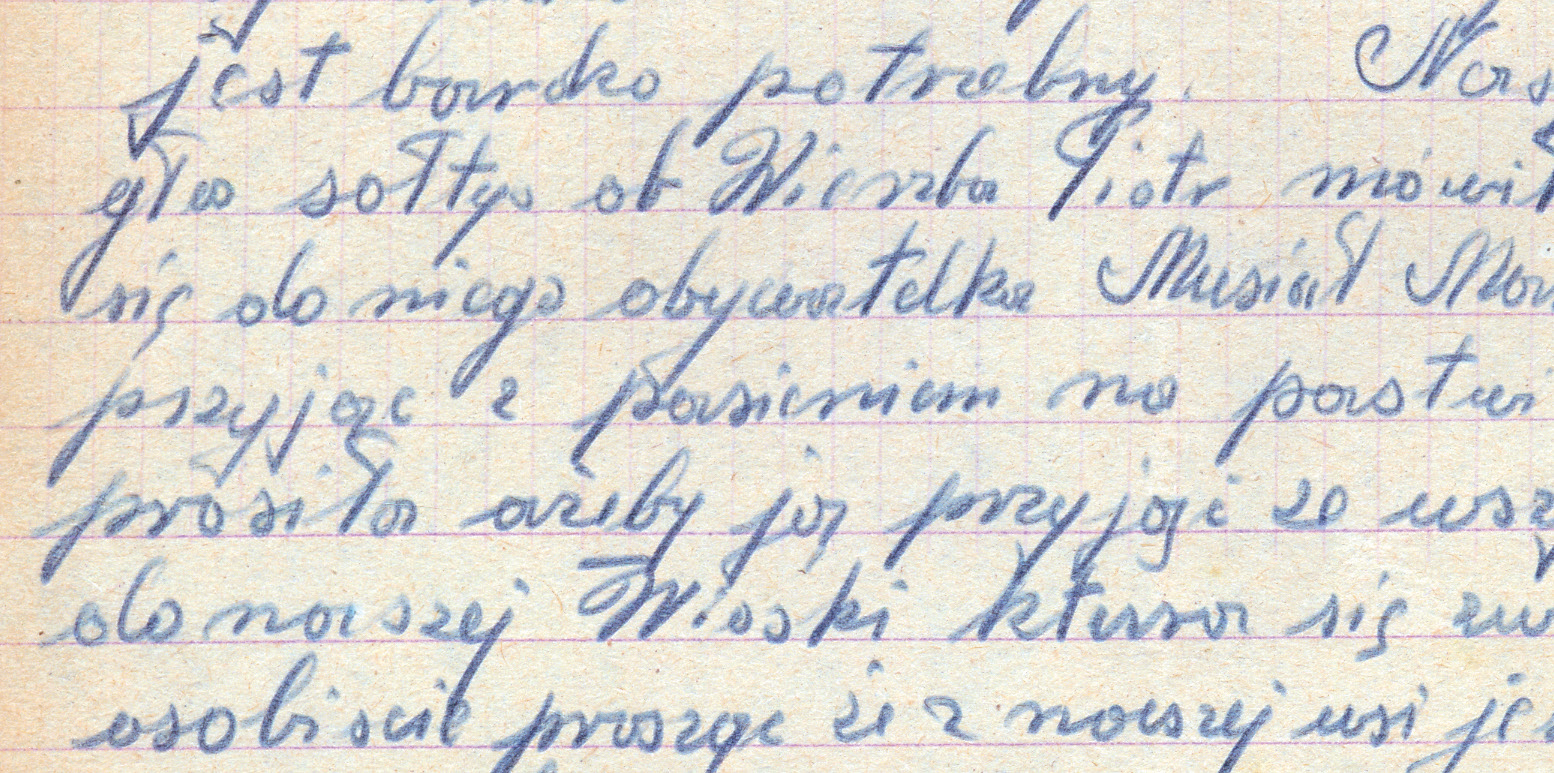 jest bardzo potrzebny. Nas
głos sołtys ob Wierzba Piotr mówił
się do niego obywatelka Musiał Mar
przyjąć z pasieniem na pastwi
prosiła ażeby ją przyjąć ze wsz
do naszej Wioski ktura się zw
osobiscie prosząc że z naszej wsi jes